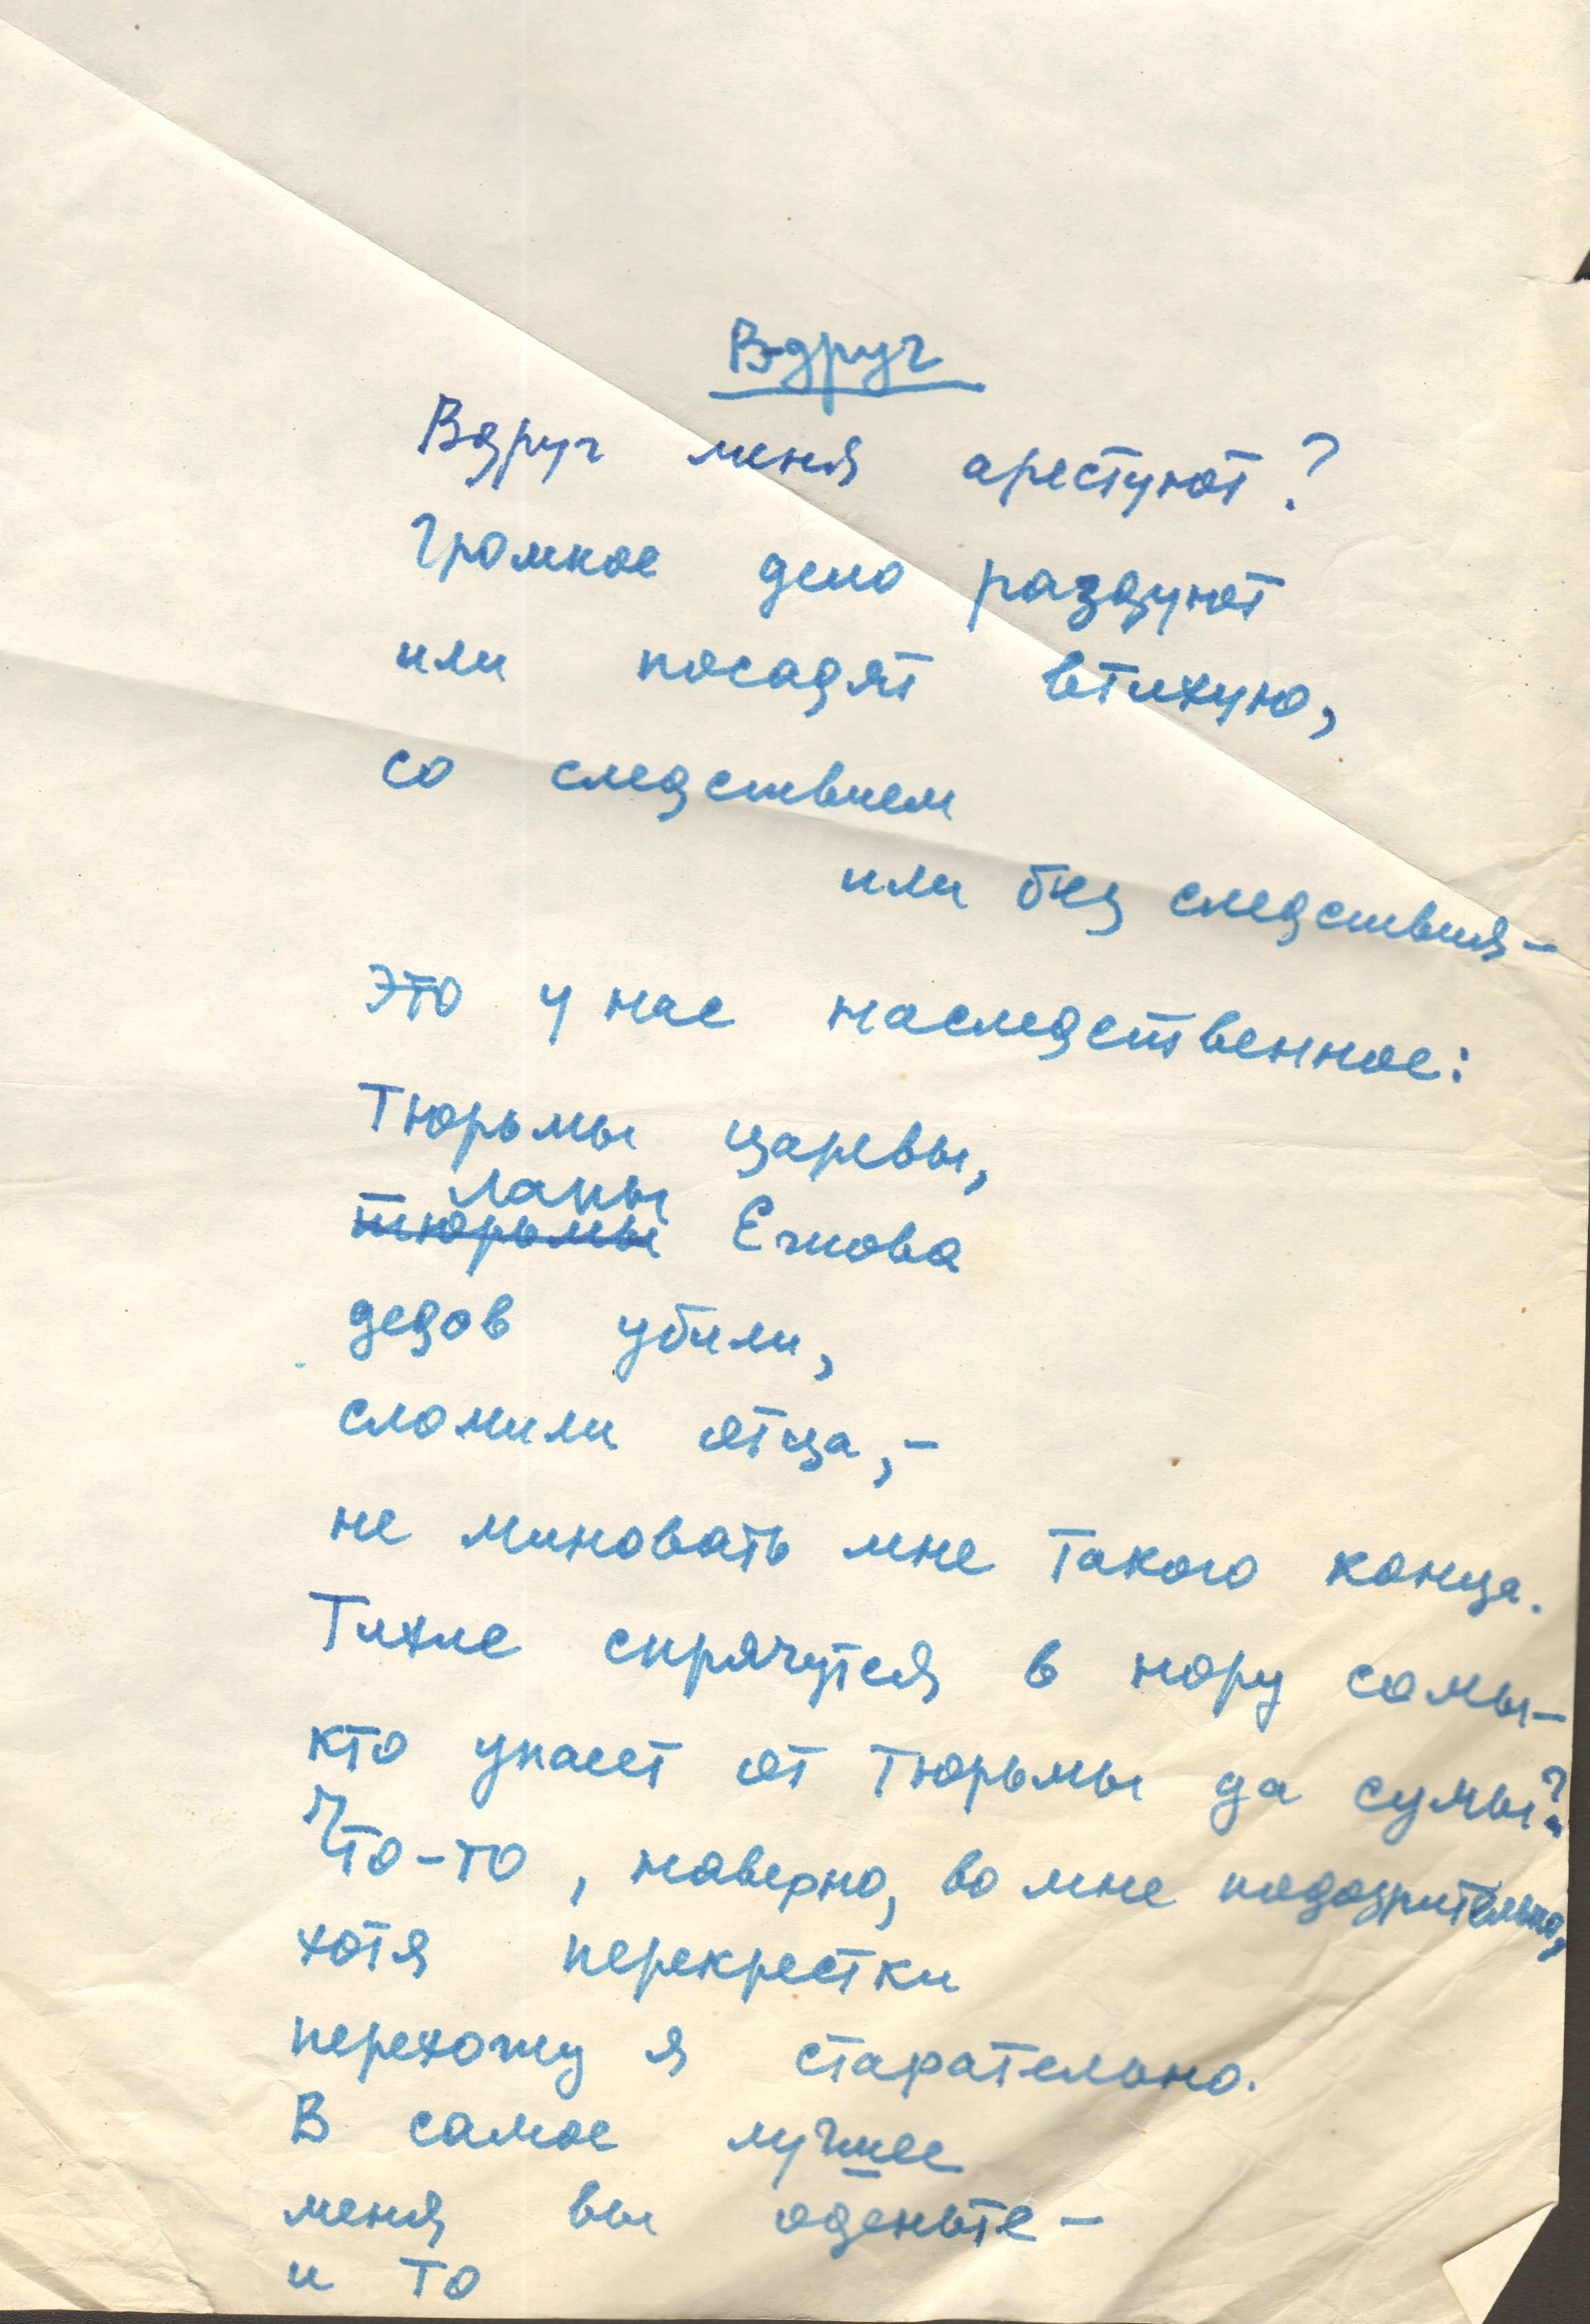 Вдруг
Вдруг меня арестуют?
Громкое дело раздуют
или посадят втихую,
со следствием
или без следствия–
это у нас наследственное:
Тюрьмы царевы,
лапы
тюрьмы Ежова
дедов убили,
сломили отца,–
не миновать мне такого конца.
Тихие спрячутся в нору сомы–
кто упасет от тюрьмы да сумы?
Что-то, наверно, во мне подозрительно,
хотя перекрестки
перехожу я старательно.
В самое лучшее
меня вы оденьте–
и то